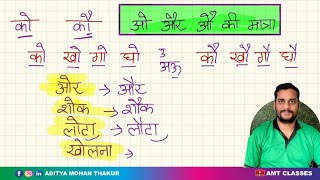 को कौ ओ और औ की मात्रा
को खो गो घो कौ खौ गौ घौ
ओर → और
शोक → शौक
लोटा → लौटा
खोलना →
in ADITYA MOHAN THAKUR AMT CLASSES